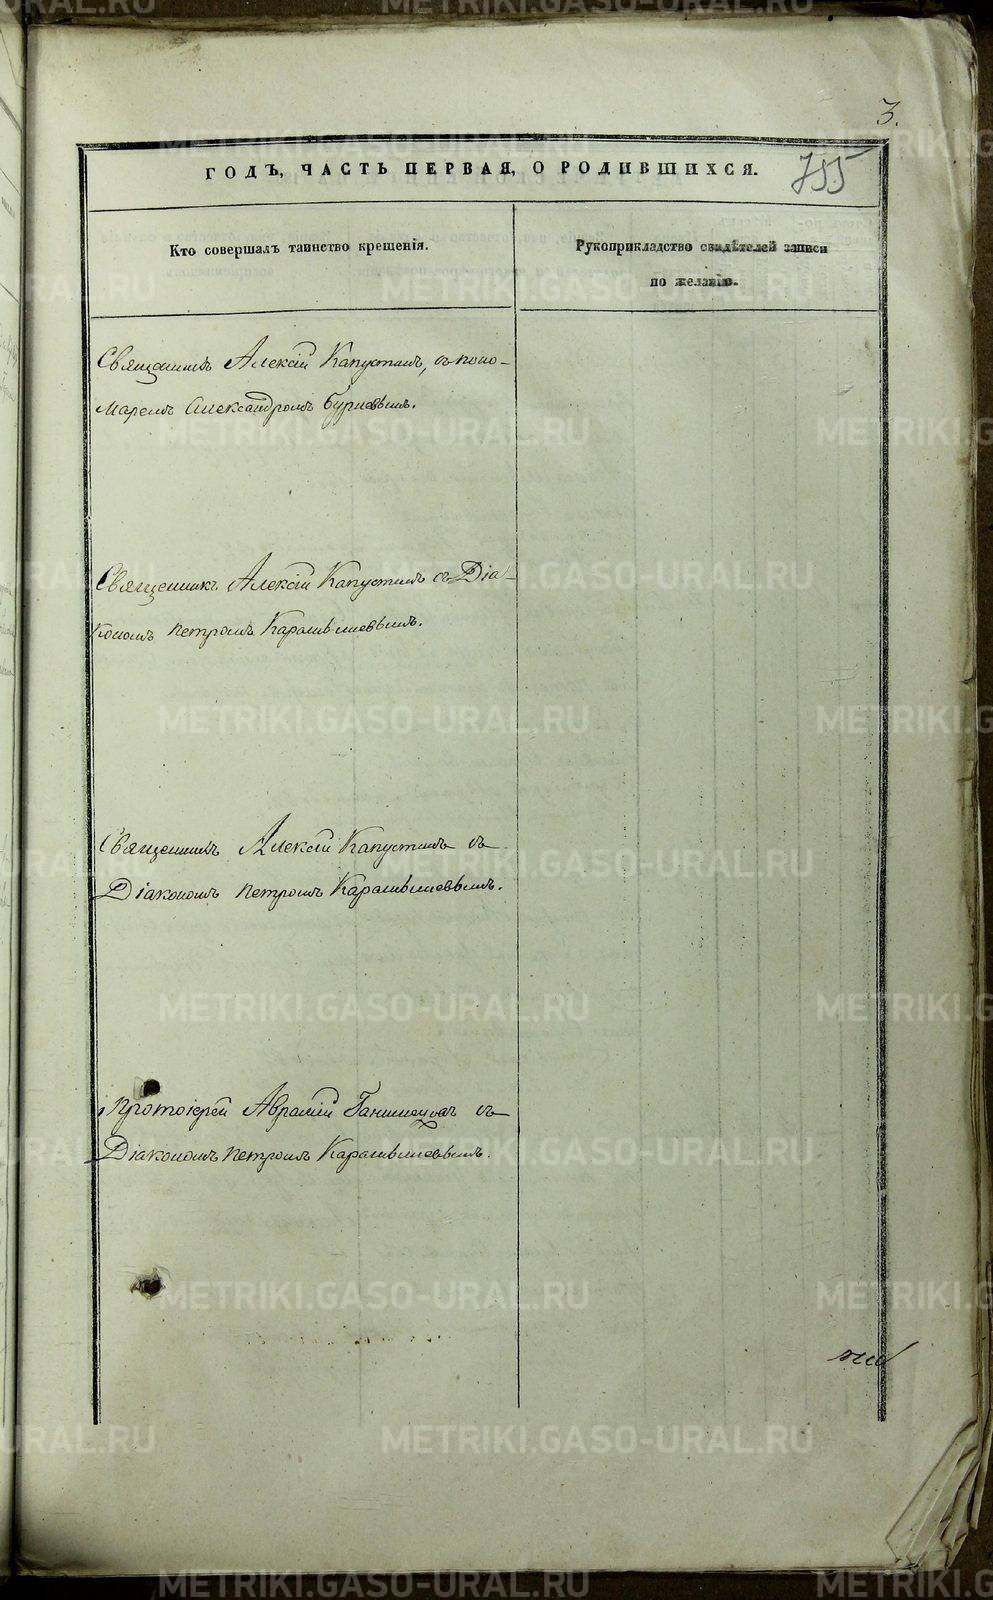 3.
755
ГОДЪ, ЧАСТЬ ПЕРВАЯ, О РОДИВШИХСЯ.
Кто совершалъ таинство крещенія.
Рукоприкладство свидѣтелей записи
по желанію.
Священникъ Алексій Капустинъ, съ поно-
маремъ Александромъ Бурневымъ.
Священникъ Алексій Капустинъ съ Діа-
кономъ Петромъ
Священникъ Алексій Капустинъ съ
Діакономъ Петромъ
Протоіерей Аврамій съ
Діакономъ Петромъ
METRIKI.GASO-URAL.RU